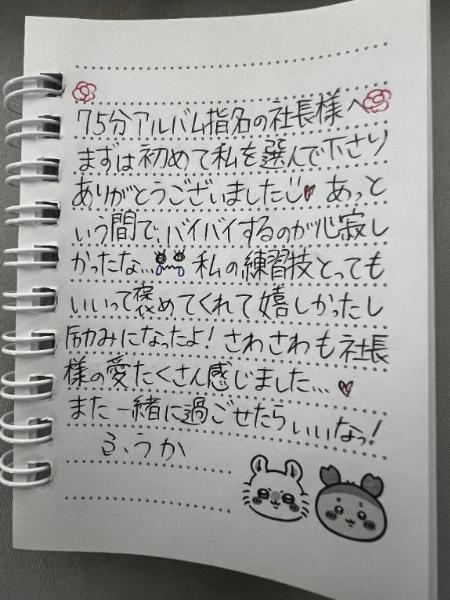 75分アルバム指名の社長様へ
まずは初めて私を選んで下さり
ありがとうございました♥ あっと
いう間で、バイバイするのが心寂し
かったな... 私の練習技とっても
いいって褒めてくれて嬉しかったし
励みになったよ! さわさわも社長
様の愛たくさん感じました...♥
また一緒に過ごせたらいいなっ!
ふうか